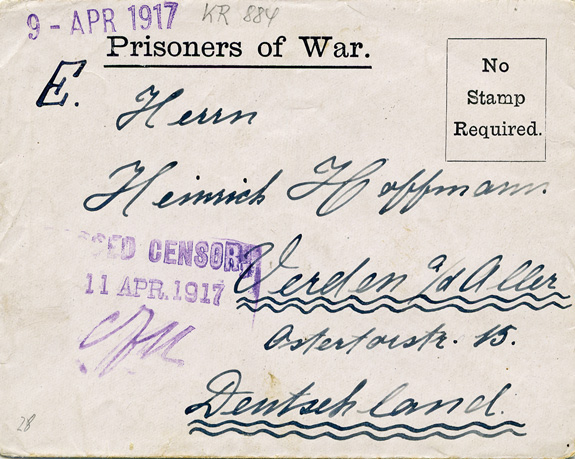 9 - APR 1917 KR 884
Prisoners of War.
E.
No
Stamp
Required.
Herrn
Heinrich Hoffmann
PASSED CENSOR
11 APR. 1917
Verden a/d Aller
Ostertorstr. 15.
Deutschland.
28